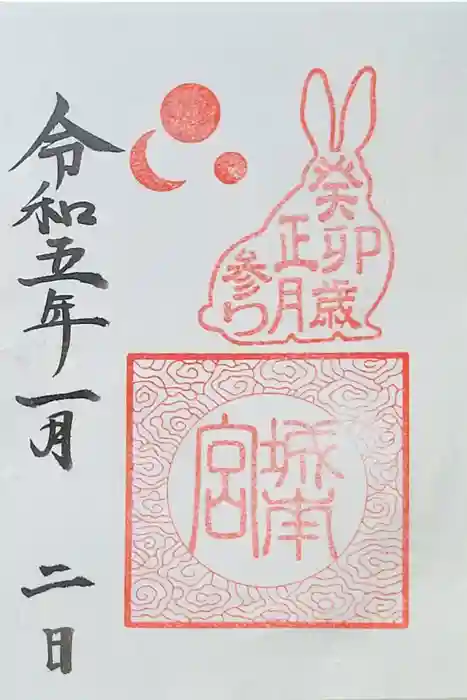 癸卯歳
正月
参り
城南
宮
令和五年一月二日